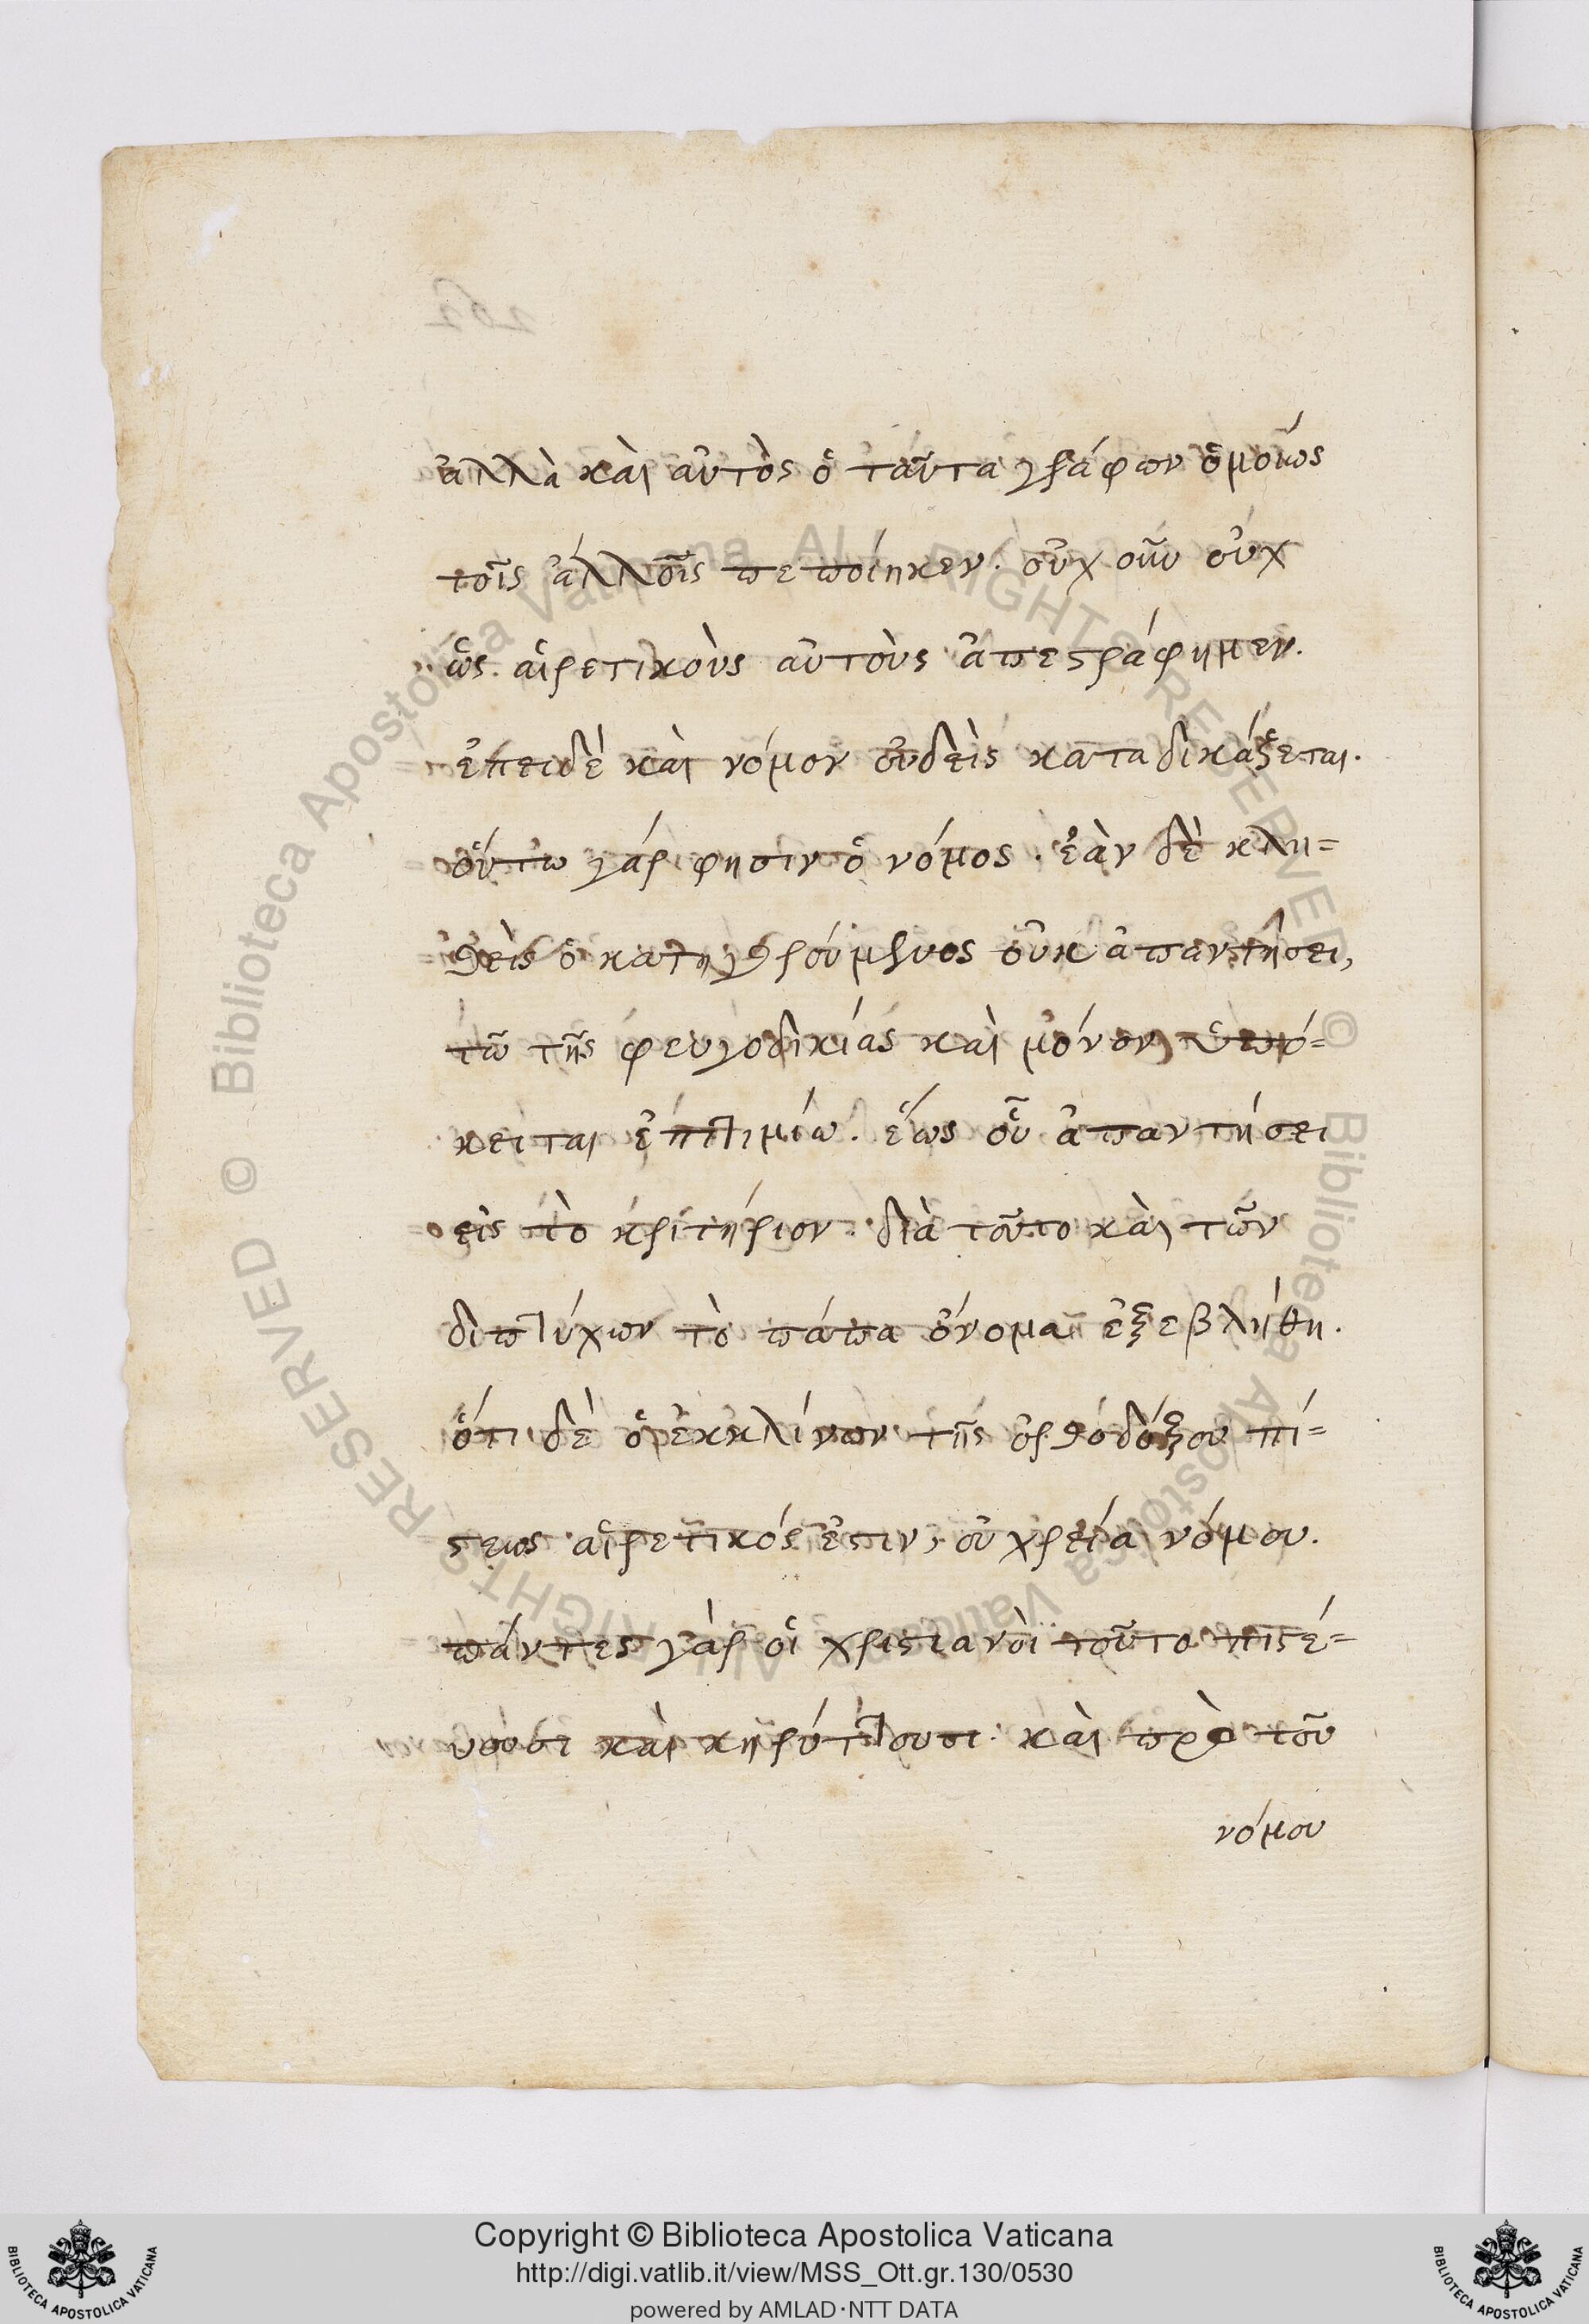 ἀλλὰ καὶ αὐτὸς ὁ ταῦτα γράφων ὁμοίως
τοῖς ἄλλοις πεποίηκεν. οὐχ οὖν οὐχ
ὡς αἱρετικοὺς αὐτοὺς ἀπεστράφημεν.
ἐπειδὲ καὶ νόμον οὐδεὶς καταδικάζεται.
οὕτω γάρ φησιν ὁ νόμος. ἐὰν δὲ κλη=
θεὶς ὁ κατηγορούμενος οὐκ ἀπαντήσει,
τῶ τῆς φευγοδικίας καὶ μόνον ὑπό=
κειται ἐπιτιμίω. ἕως οὗ ἀπαντήσει
εἰς τὸ κριτήριον. διὰ τοῦτο καὶ τῶν
διπτύχων τὸ πάπα ὄνομα ἐξεβλήθη.
ὅτι δὲ ὁ ἐκκλίνων τῆς ὀρθοδόξου πί=
στεως αἱρετικός ἐστιν, οὐ χρεία νόμου.
πάντες γὰρ οἱ χριστιανοὶ τοῦτο πιστέ=
υουσι καὶ κηρύττουσι. καὶ πρὸ τοῦ
νόμου
Copyright © Biblioteca Apostolica Vaticana
http://digi.vatlib.it/view/MSS_Ott.gr.130/0530
powered by AMLAD·NTT DATA